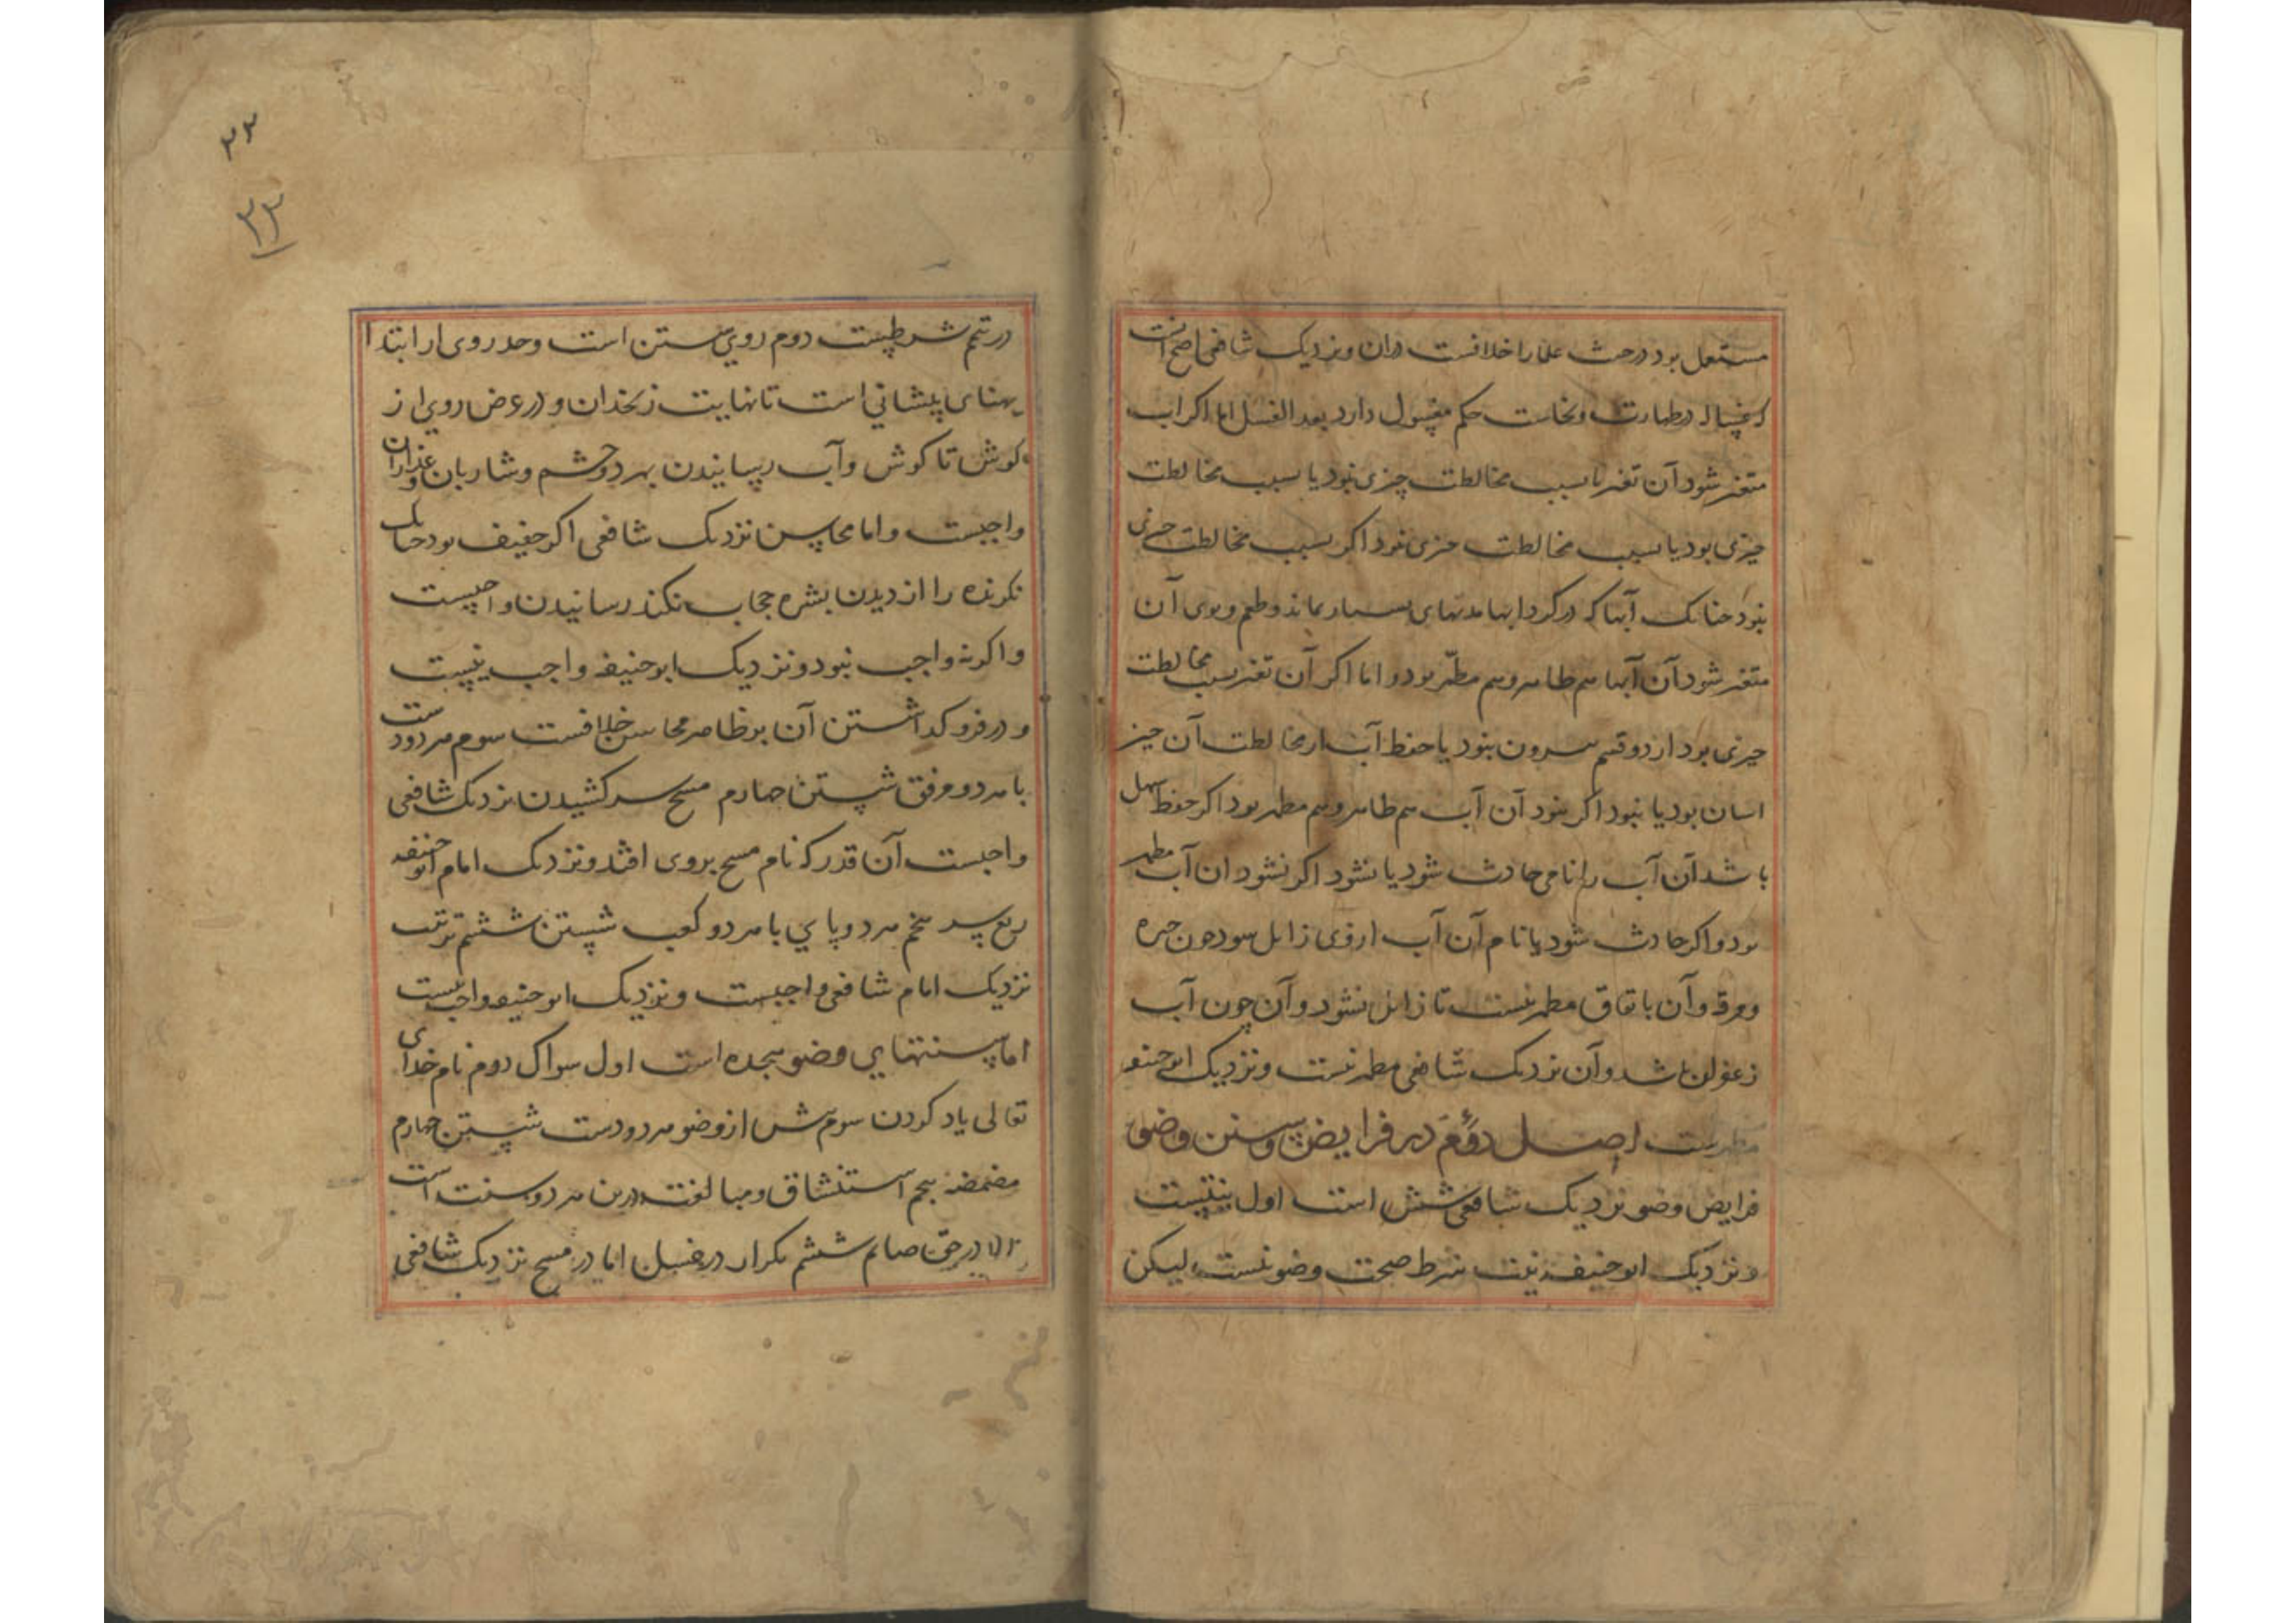 مستعمل بود در حدث علما را خلافست دران و نزدیک شافعی اصح آنست
که غساله در طهارت و نجاست حکم مغسول دارد بعد الغسل اما اکر اب
متغیر شود آن تغیر یا بسبب مخالطت چیزی نبود یا بسبب مخالطت
چیزی بود یا بسبب مخالطت چیزی نبود اکر بسبب مخالطت چیزی
نبود چنانک آبها که در کردابها مدتهای بسیار بماند و طعم و بوی آن
متغیر شود آن آبها هم طاهر و هم مطهّر بود و اما اکر آن تغیر بسبب مخالطت
چیزی بود از دو قسم بیرون نبود یا حفظ آب از مخالطت آن چیز
اسان بود یا نبود اکر نبود آن آب هم طاهر و هم مطهر بود اکر حفظ سهل
باشد آن آب را نامی حادث شود یا نشود اکر نشود ان آب مطهر
بود و اکر حادث شود یا نام آن آب ازوی زایل سود چون حبره
و مرقه و آن باتفاق مطهر نیست تا زایل نشود و آن چون آب
زعفران باشد و آن نزدیک شافعی مطهر نیست و نزدیک ابوحنیفه
مطهرست اصل دوم در فرایض و سنن وضو
فرایض وضو نزدیک شافعی شش است اول نیتست
و نزدیک ابوحنیفه نیت شرط صحت وضو نیست لیکن
۲۲
۲۲
در تیمم شرطیست دوم روی شستن است و حد روی از ابتدا
پهنای پیشانی است تا نهایت زنخدان و در عرض روی از
کوش تا کوش و آب رسانیدن بهر دو چشم و شاربان و عذاران
واجبست و اما محاسن نزدیک شافعی اکر خفیف بود چنانک
نکرنده را از دیدن بشره حجاب نکند رسانیدن واجبست
و اکرنه واجب نبود و نزدیک ابوحنیفه واجب نیست
و در فرو کذاشتن آن بر ظاهر محاسن خلافست سوم هر دو دست
با هر دو مرفق شستن چهارم مسح سر کشیدن نزدیک شافعی
واجبست آن قدر که نام مسح بروی افتد و نزدیک امام ابوحنیفه
ربع سر پنجم هر دو پای با هر دو کعب شستن ششم ترتیب
نزدیک امام شافعی واجبست و نزدیک ابوحنیفه واجب نیست
اما سنتهای وضو هجده است اول سواک دوم نام خدای
تعالی یاد کردن سوم پیش از وضو هر دو دست شستن چهارم
مضمضه پنجم استنشاق و مبالغت درین هر دو سنت است
الا در حق صایم ششم تکرار در غسل اما در مسح نزدیک شافعی